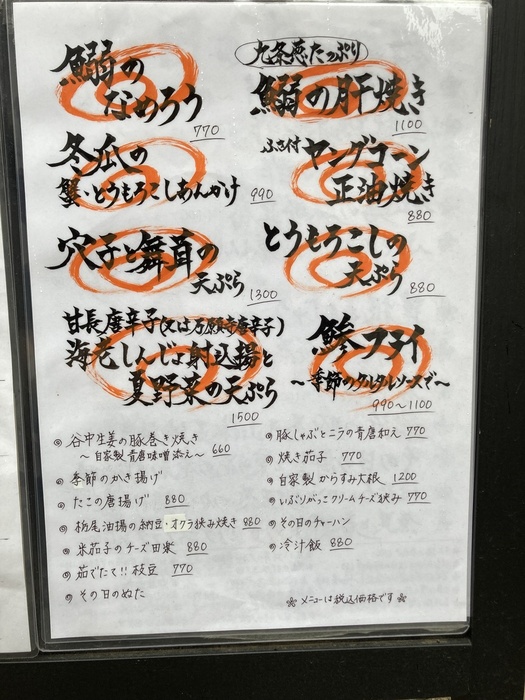 鰯の
なめろう
770
九条葱たっぷり
鰯の肝焼き
1100
冬瓜の
蟹・とうもろこしあんかけ 990
ふさ付 ヤングコーン
正油焼き
880
穴子と舞茸の
天ぷら 1300
とうもろこしの
天ぷら 880
甘長唐辛子(又は万願寺唐辛子)
海老しんじょ射込揚と
夏野菜の天ぷら
1500
鯵フライ
〜季節のタルタルソースで〜
990〜1100
◎ 谷中生姜の豚巻き焼き
〜自家製青唐味噌添え〜 660
◎ 季節のかき揚げ
◎ たこの唐揚げ 880
◎ 栃尾油揚の納豆・オクラ挟み焼き 880
◎ 米茄子のチーズ田楽 880
◎ 茹でたて!!枝豆 770
◎ その日のぬた
◎ 豚しゃぶとニラの青唐和え 770
◎ 焼き茄子 770
◎ 自家製からすみ大根 1200
◎ いぶりがっこクリームチーズ挟み 770
◎ その日のチャーハン
◎ 冷汁飯 880
※ メニューは税込価格です ※